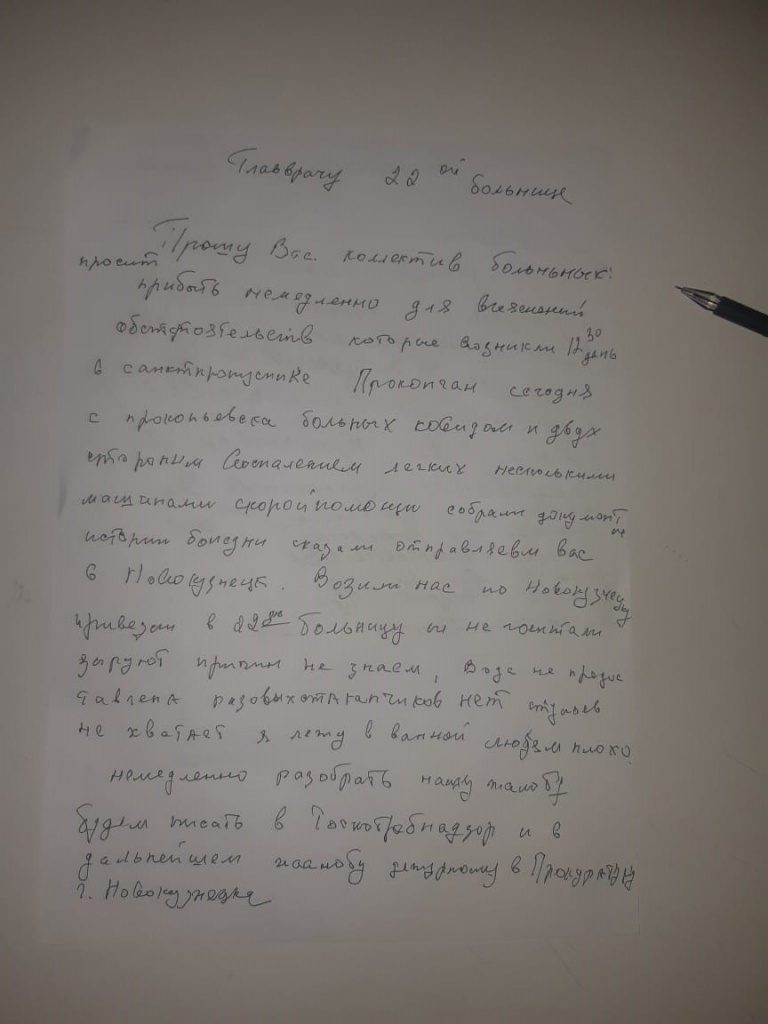 Главврачу 22 ой больнице
Прошу Вас. коллектив больных:
просит прибыть немедленно для
обстоятельств которые возникли 12 30 день
в санктпропуснике Прокопчан сегодня
с прокопьевска больных ковидом и двух
стороним Воспалением легких несколькими
машинами скорой помощи собрали документ
истории болезни сказали отправляем вас
в Новокузнецк. Возили нас по Новокузнецку
привезли в 22 ую больницу и не госпитали
зируют причин не знаем, Вода не предос
тавлена разовых стаканчиков нет стульев
не хватает я лежу в ванной людям плохо.
немедленно разобрать нашу жалобу
будем писать в Госпотребнадзор и в
дальнейшем жалобу дежурному в Прокуратуру
г. Новокузнецка